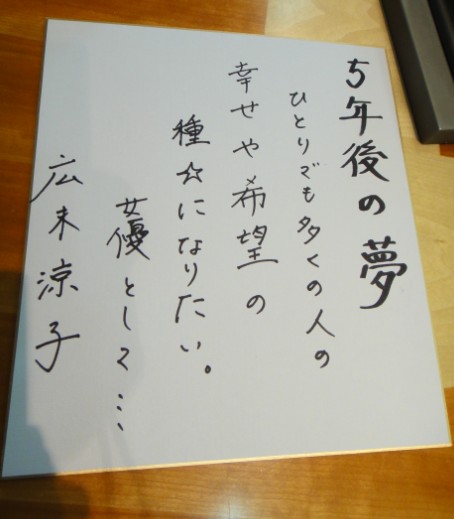 5年後の夢
ひとりでも多くの人の
幸せや希望の
種☆になりたい。
女優として…
広末涼子